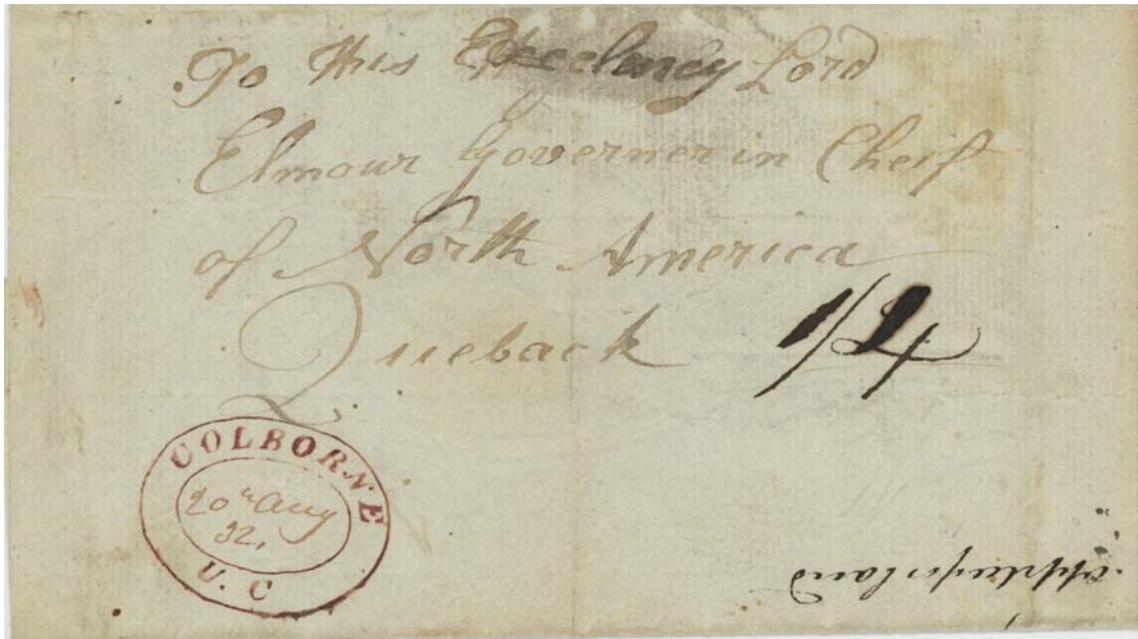 To His Excelency Lord
Elmour Governer in Cheif
of North America
Queback
COLBORNE
20th Aug
32.
U. C
for land